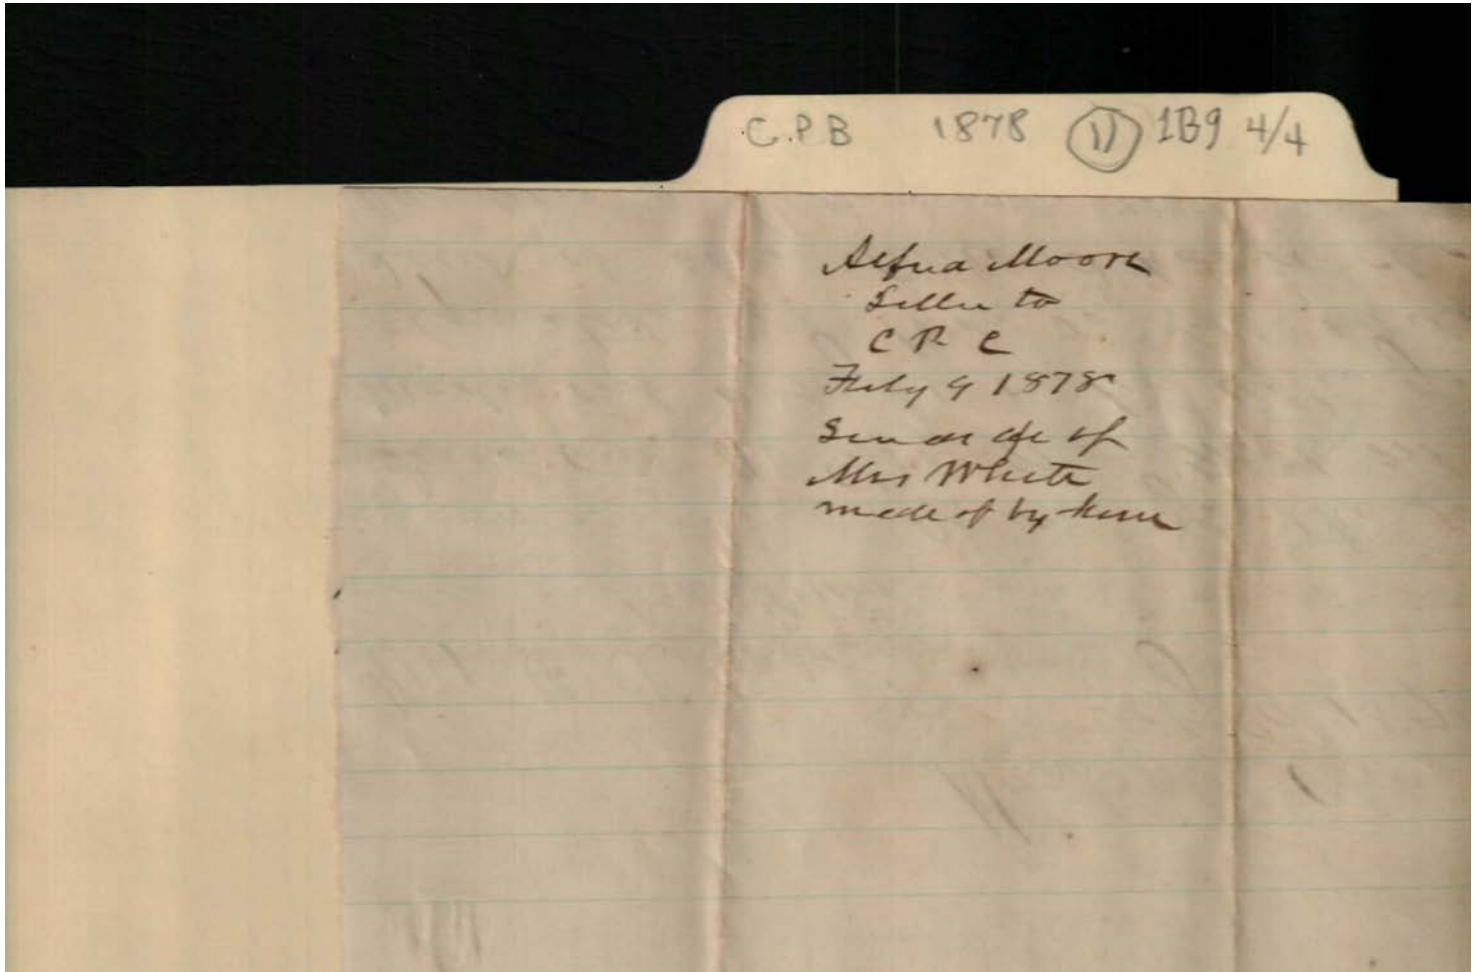 C.P.B 1878 11 1B9 4/4
Moore
Letter to
C P C
July 9 1878
of
Mrs White
made of by